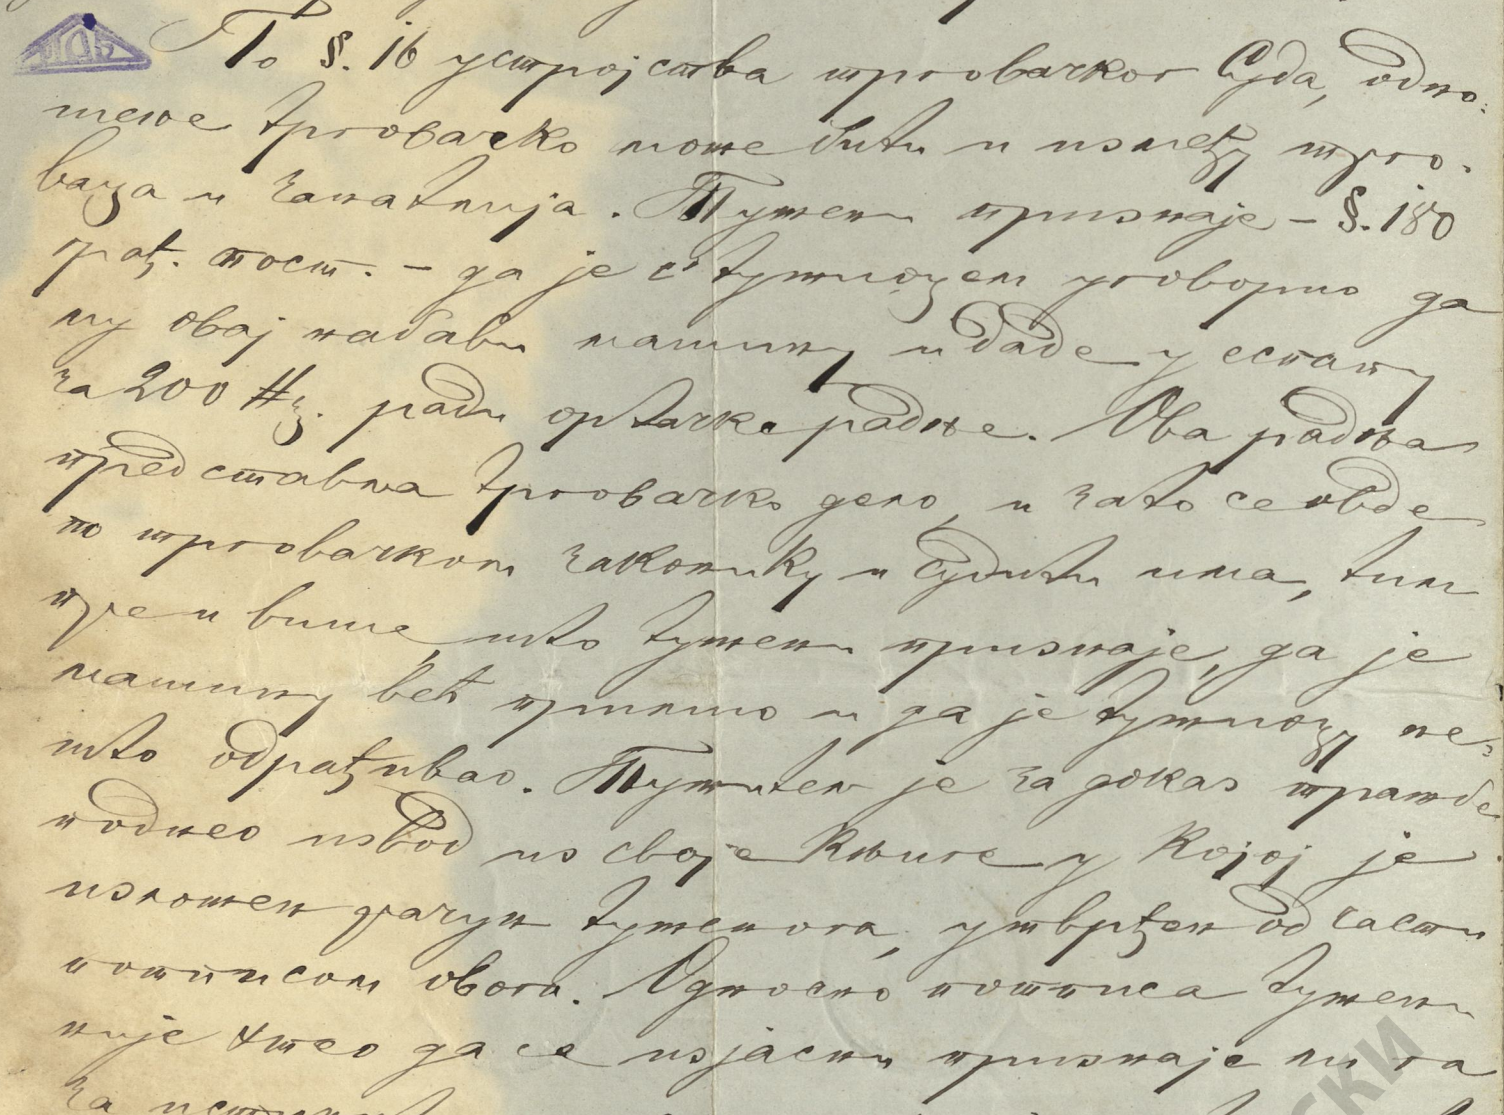 По §. 16 устројства трговачког Суда, одно-
шење трговачко може бити и између трго-
ваца и занатлија. Тужени признаје – §. 180
грађ. пост. – да је с' тужиоцем уговорио да
му овај набави машину и даде у еспапу
за 200 #ц. ради ортачке радње. Ова радња
представља трговачко дело, и зато се овде
по трговачком законику и судити има, тим
пре и више, што тужени признаје, да је
машину већ примио и да је тужиоцу не-
што одраћивао. Тужитељ је за доказ тражбе
поднео извод из своје књиге у којој је
изложен рачун туженога, утврђен од части
потписом овога. Односно потписа тужени
није хтео да се изјасни признаје ли га
за
СКИ